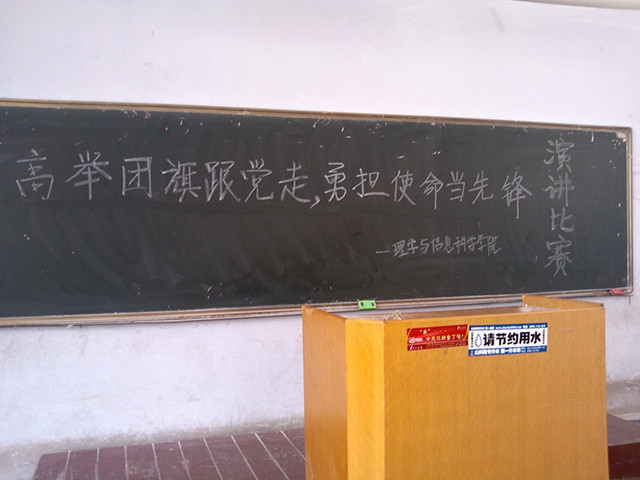 高举团旗跟党走,勇担使命当先锋
演讲比赛
—理学与信息科学学院
请节约用水!